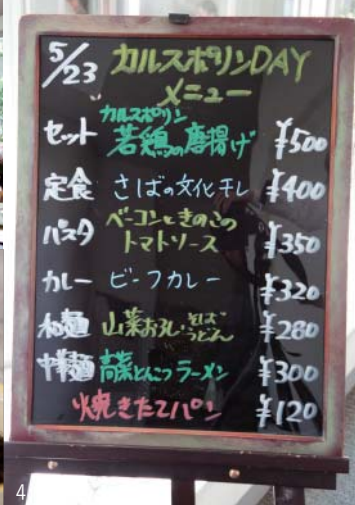 5/23 カルスポリンDAY
メニュー
カルスポリン
セット 若鶏の唐揚げ ¥500
定食 さばの文化干し ¥400
パスタ ベーコンときのこの
トマトソース ¥350
カレー ビーフカレー ¥320
和麺 山菜おろし そば
うどん ¥280
中華麺 高菜とんこつラーメン ¥300
焼きたてパン ¥120
4